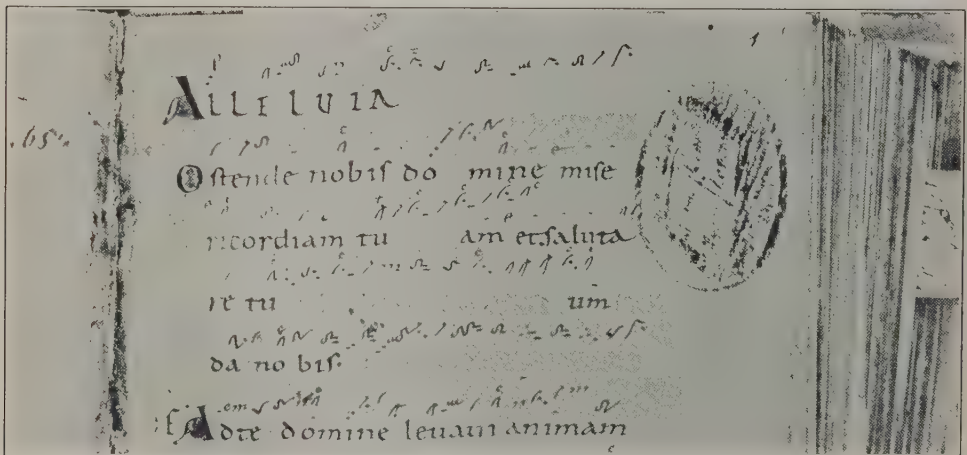 ALLELUIA
Ostende nobis do mine mise
ricordiam tu am et saluta
re tu um
da nobis.
Ad te domine levavi animam